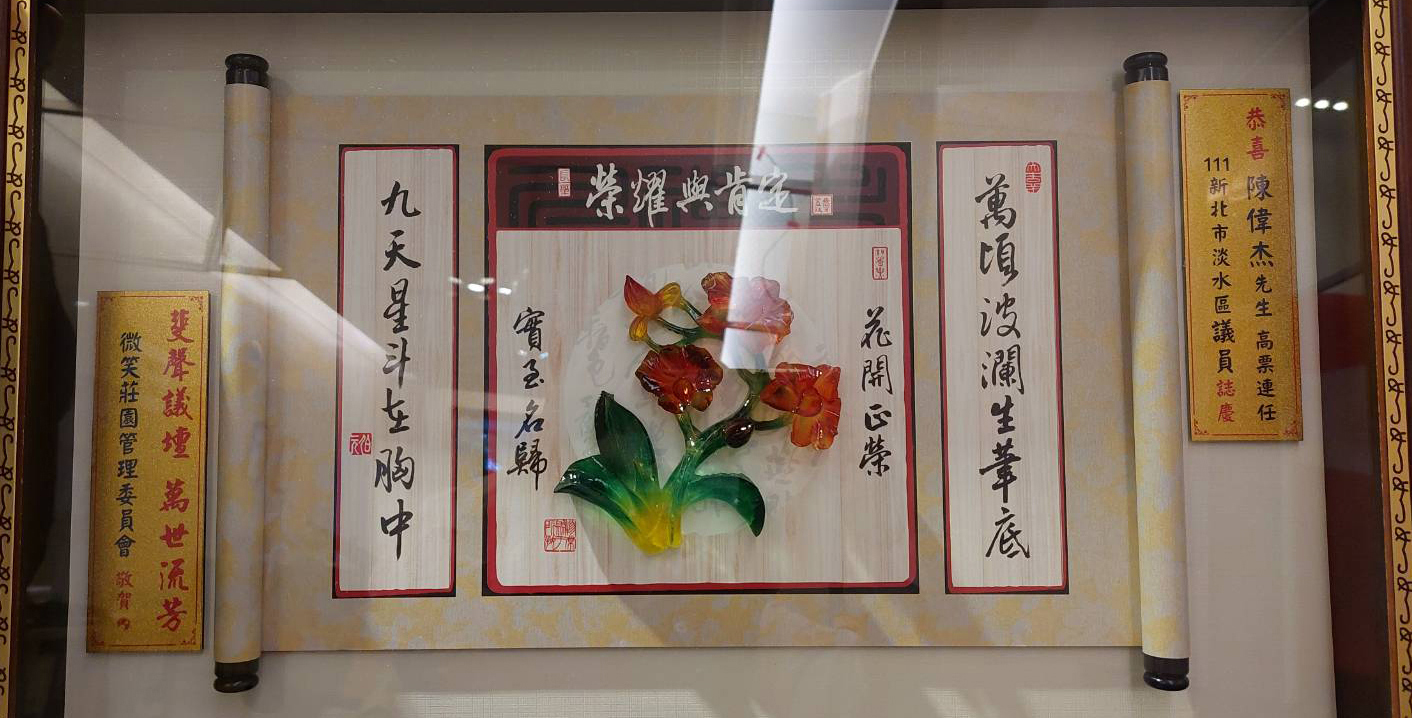 恭喜 陳偉杰先生 高票連任
111新北市淡水區議員誌慶
萬頃波瀾生筆底
榮耀與肯定
花開正榮
實至名歸
九天星斗在胸中
斐聲議壇 萬世流芳
微笑莊園管理委員會 敬賀